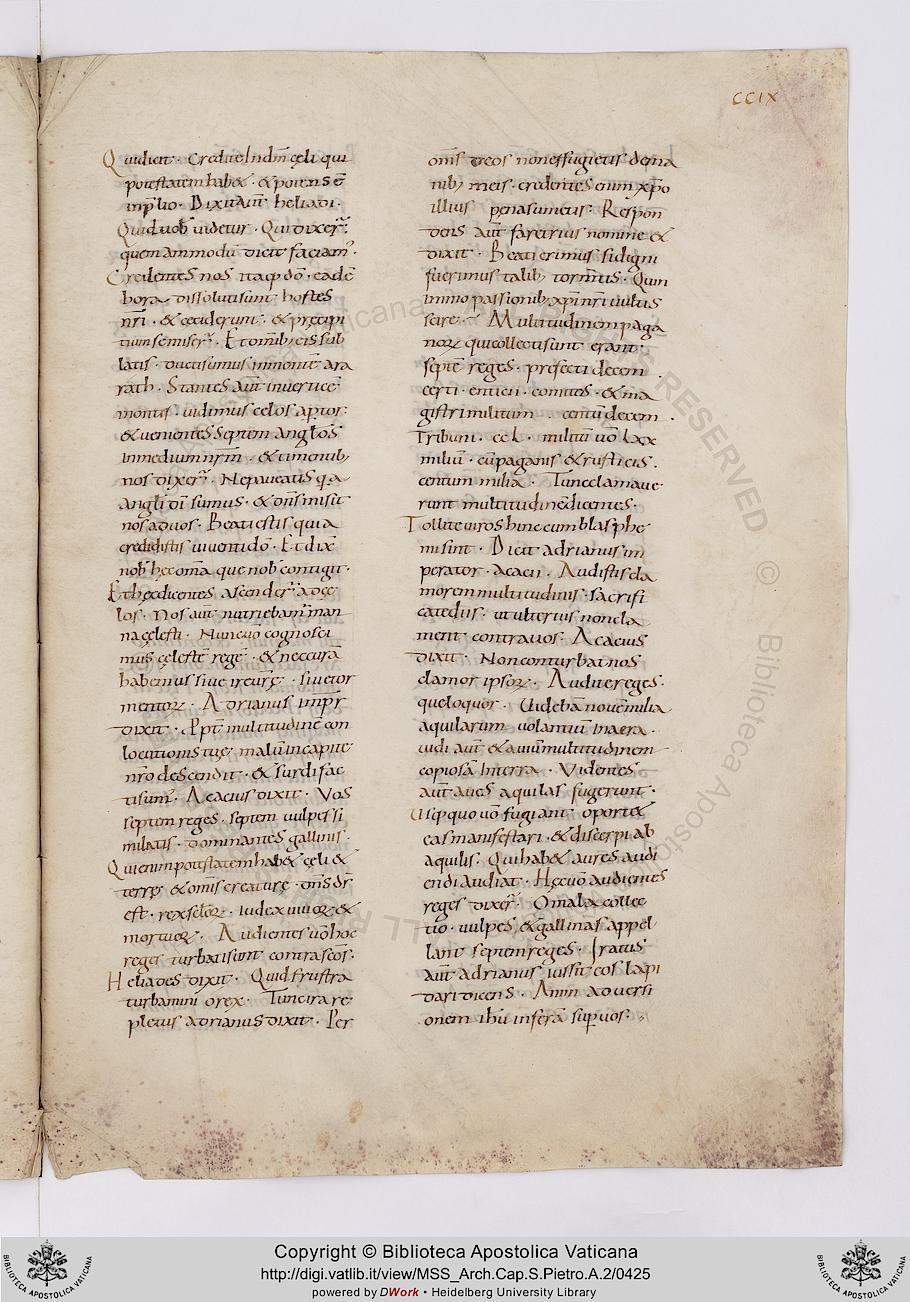 CCIX
Qui dicit · Credite In dm̄ cęli qui
potestatem hab& · & potens ē
in p̄lio · Dixit aūt heliadi ·
Quid uob uidetur · Qui dixer̄ ·
quem ammodū dicit faciam ·
Credentes nos itaq; dō · eadē
hora dissoluti sunt hostes
nr̄i · & ceciderunt · & precipi
tium se miser̄ · Et omib; eis sub
latis · ducti sumus in montē ara
rath · Stantes aūt in uertice
montis · uidimus celos aptos:
& uenientes septem anglos
in medium nr̄m · & timentib;
nos dixer̄ · Ne paueatis q̄a
angli dī sumus · & dn̄s misit
nos ad uos · Beati estis quia
credidistis uiuenti dō · Et dix̄
nob hec om̄a que nob contigit ·
Et hęc dicentes ascender̄ ad cę
los · Nos aūt nutriebam̄ man
na cęlesti · Nunc uō cognosci
mus cęlestē regē · & nec curā
habemus siue irę ur̄ę · siue tor
mentorꝝ · Adrianus imp̄r
dixit · Ppt̄ multitudinē con
locutionis tuę malū in capite
nr̄o descendit · & surdi fac
ti sum̄ · Acacius dixit · Vos
septem reges · septem uulpes si
milatis · dominantes gallinis ·
Qui enim potestatem hab& cęli &
terrę & omis creaturę · dn̄s ds̄
est · rex sc̄lorꝝ · iudex uiuorꝝ &
mortuorꝝ · Audientes uō hoc
reges turbati sunt contra sc̄os ·
Heliades dixit · Quid frustra
turbamini o rex · Tunc ira re
pletus adrianus dixit · Per
om̄s deos non effugietis de ma
nib; meis · credentes enim xp̄o
illius penas umetis · Respon
dens aūt faretrius nomine &
dixit · Beati erimus si digni
fuerimus talib; torm̄tis · Quin
immo passionib; xp̄i nr̄i uultis
scire · Multitudinem paga
norꝝ qui collecti sunt erant ·
septē reges · prefecti decem ·
certi · enticri · comites · & ma
gistri militum · centū decem ·
Tribuni · cc l · militū uō lxx
miliū · cū paganis & rusticis ·
centum milia · Tunc clamaue
runt multitudinē dicentes ·
Tollite uiros hinc cum blasphe
mi sint · Dicit adrianus im
perator · acacii · Audistis cla
morem multitudinis · sacrifi
cate diis · ut ulterius non cla
ment contra uos · Acacius
dixit · Non conturbat nos
clamor ipsorꝝ · Audite reges ·
que loquor · Uidebā nouē milia
aquilarum uolantiū in aera ·
uidi aūt & auium multitudinem
copiosā In terra · Videntes
aūt aues aquilas fugerunt ·
Usq; quo uō fugiant oport&
eas manifestari · & discerpi ab
aquilis: Qui hab& aures audi
endi audiat · Hęc uō audientes
reges dixer̄ · O mala collec
tio · uulpes & gallinas appel
lant septem reges · Iratus
aūt adrianus iussit eos lapi
dari dicens · Amn aduersi
onem ihū inferā sup̄ uos:
Copyright © Biblioteca Apostolica Vaticana
http://digi.vatlib.it/view/MSS_Arch.Cap.S.Pietro.A.2/0425
powered by DWork • Heidelberg University Library
BIBLIOTECA APOSTOLICA VATICANA
BIBLIOTECA APOSTOLICA VATICANA